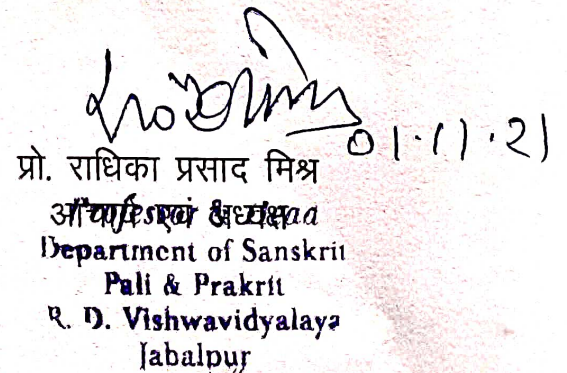 01.11.21
प्रो. राधिका प्रसाद मिश्र
आचार्य एवं अध्यक्ष
Professor &
Department of Sanskrit
Pali & Prakrit
R. D. Vishwavidyalaya
Jabalpur